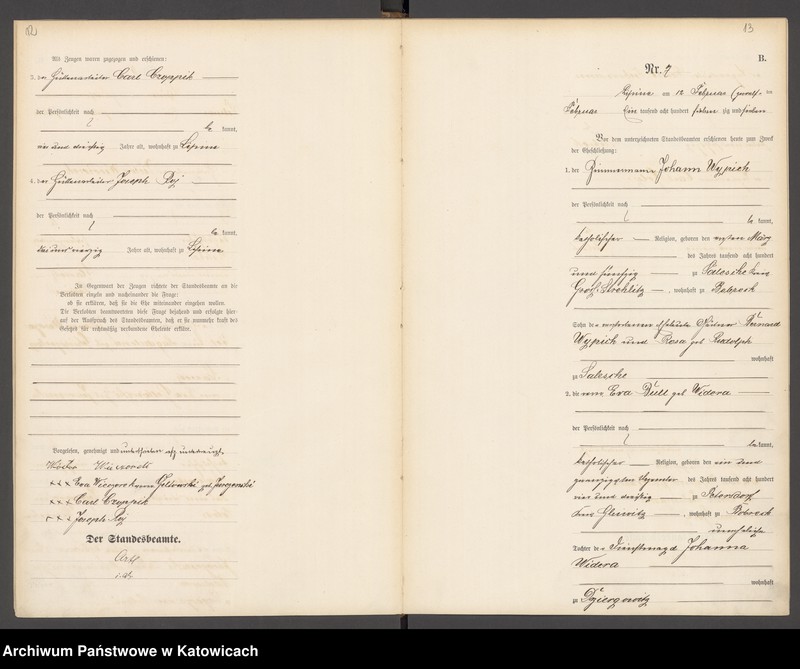 Als Zeugen waren zugezogen und erschienen:
3. der Hüttenarbeiter Carl Croppik
der Persönlichkeit nach
be kannt,
vier und dreißig Jahre alt, wohnhaft zu Lipine
4. der Hüttenarbeiter Joseph Rej
der Persönlichkeit nach
be kannt,
drei und vierzig Jahre alt, wohnhaft zu Lipine
In Gegenwart der Zeugen richtete der Standesbeamte an die
Verlobten einzeln und nacheinander die Frage:
ob sie erklären, daß sie die Ehe miteinander eingehen wollen.
Die Verlobten beantworteten diese Frage bejahend und erfolgte hier-
auf der Ausspruch des Standesbeamten, daß er sie nunmehr kraft des
Gesetzes für rechtmäßig verbundene Eheleute erkläre.
Vorgelesen, genehmigt und
+++ Eva geb
+++ Carl Croppik
+++ Joseph Rej
Der Standesbeamte.
13
B.
Nr. 7
Lipine am 12 Februar zwölf- ten
Februar Ein tausend acht hundert sieben zig und sieben
Vor dem unterzeichneten Standesbeamten erschienen heute zum Zweck
der Eheschließung:
1. der Zimmermann Johann Wyprich
der Persönlichkeit nach
be kannt,
katholischer Religion, geboren den ersten März
des Jahres tausend acht hundert
und fünfzig zu Salesche Kreis
Groß Strehlitz, wohnhaft zu Bobreck
Sohn der verstorbenen Eheleute Bernard
Wyprich und Rosa geb
wohnhaft
zu Salesche
2. die verw Eva geb Widera
der Persönlichkeit nach
be kannt,
katholischer Religion, geboren den ein und
zwanzigsten des Jahres tausend acht hundert
vier und dreißig zu Petersdorf
Kreis Gleiwitz, wohnhaft zu Bobreck
uneheliche
Tochter der Dienstmagd Johanna
Widera
wohnhaft
zu Dziergowitz
Archiwum Państwowe w Katowicach